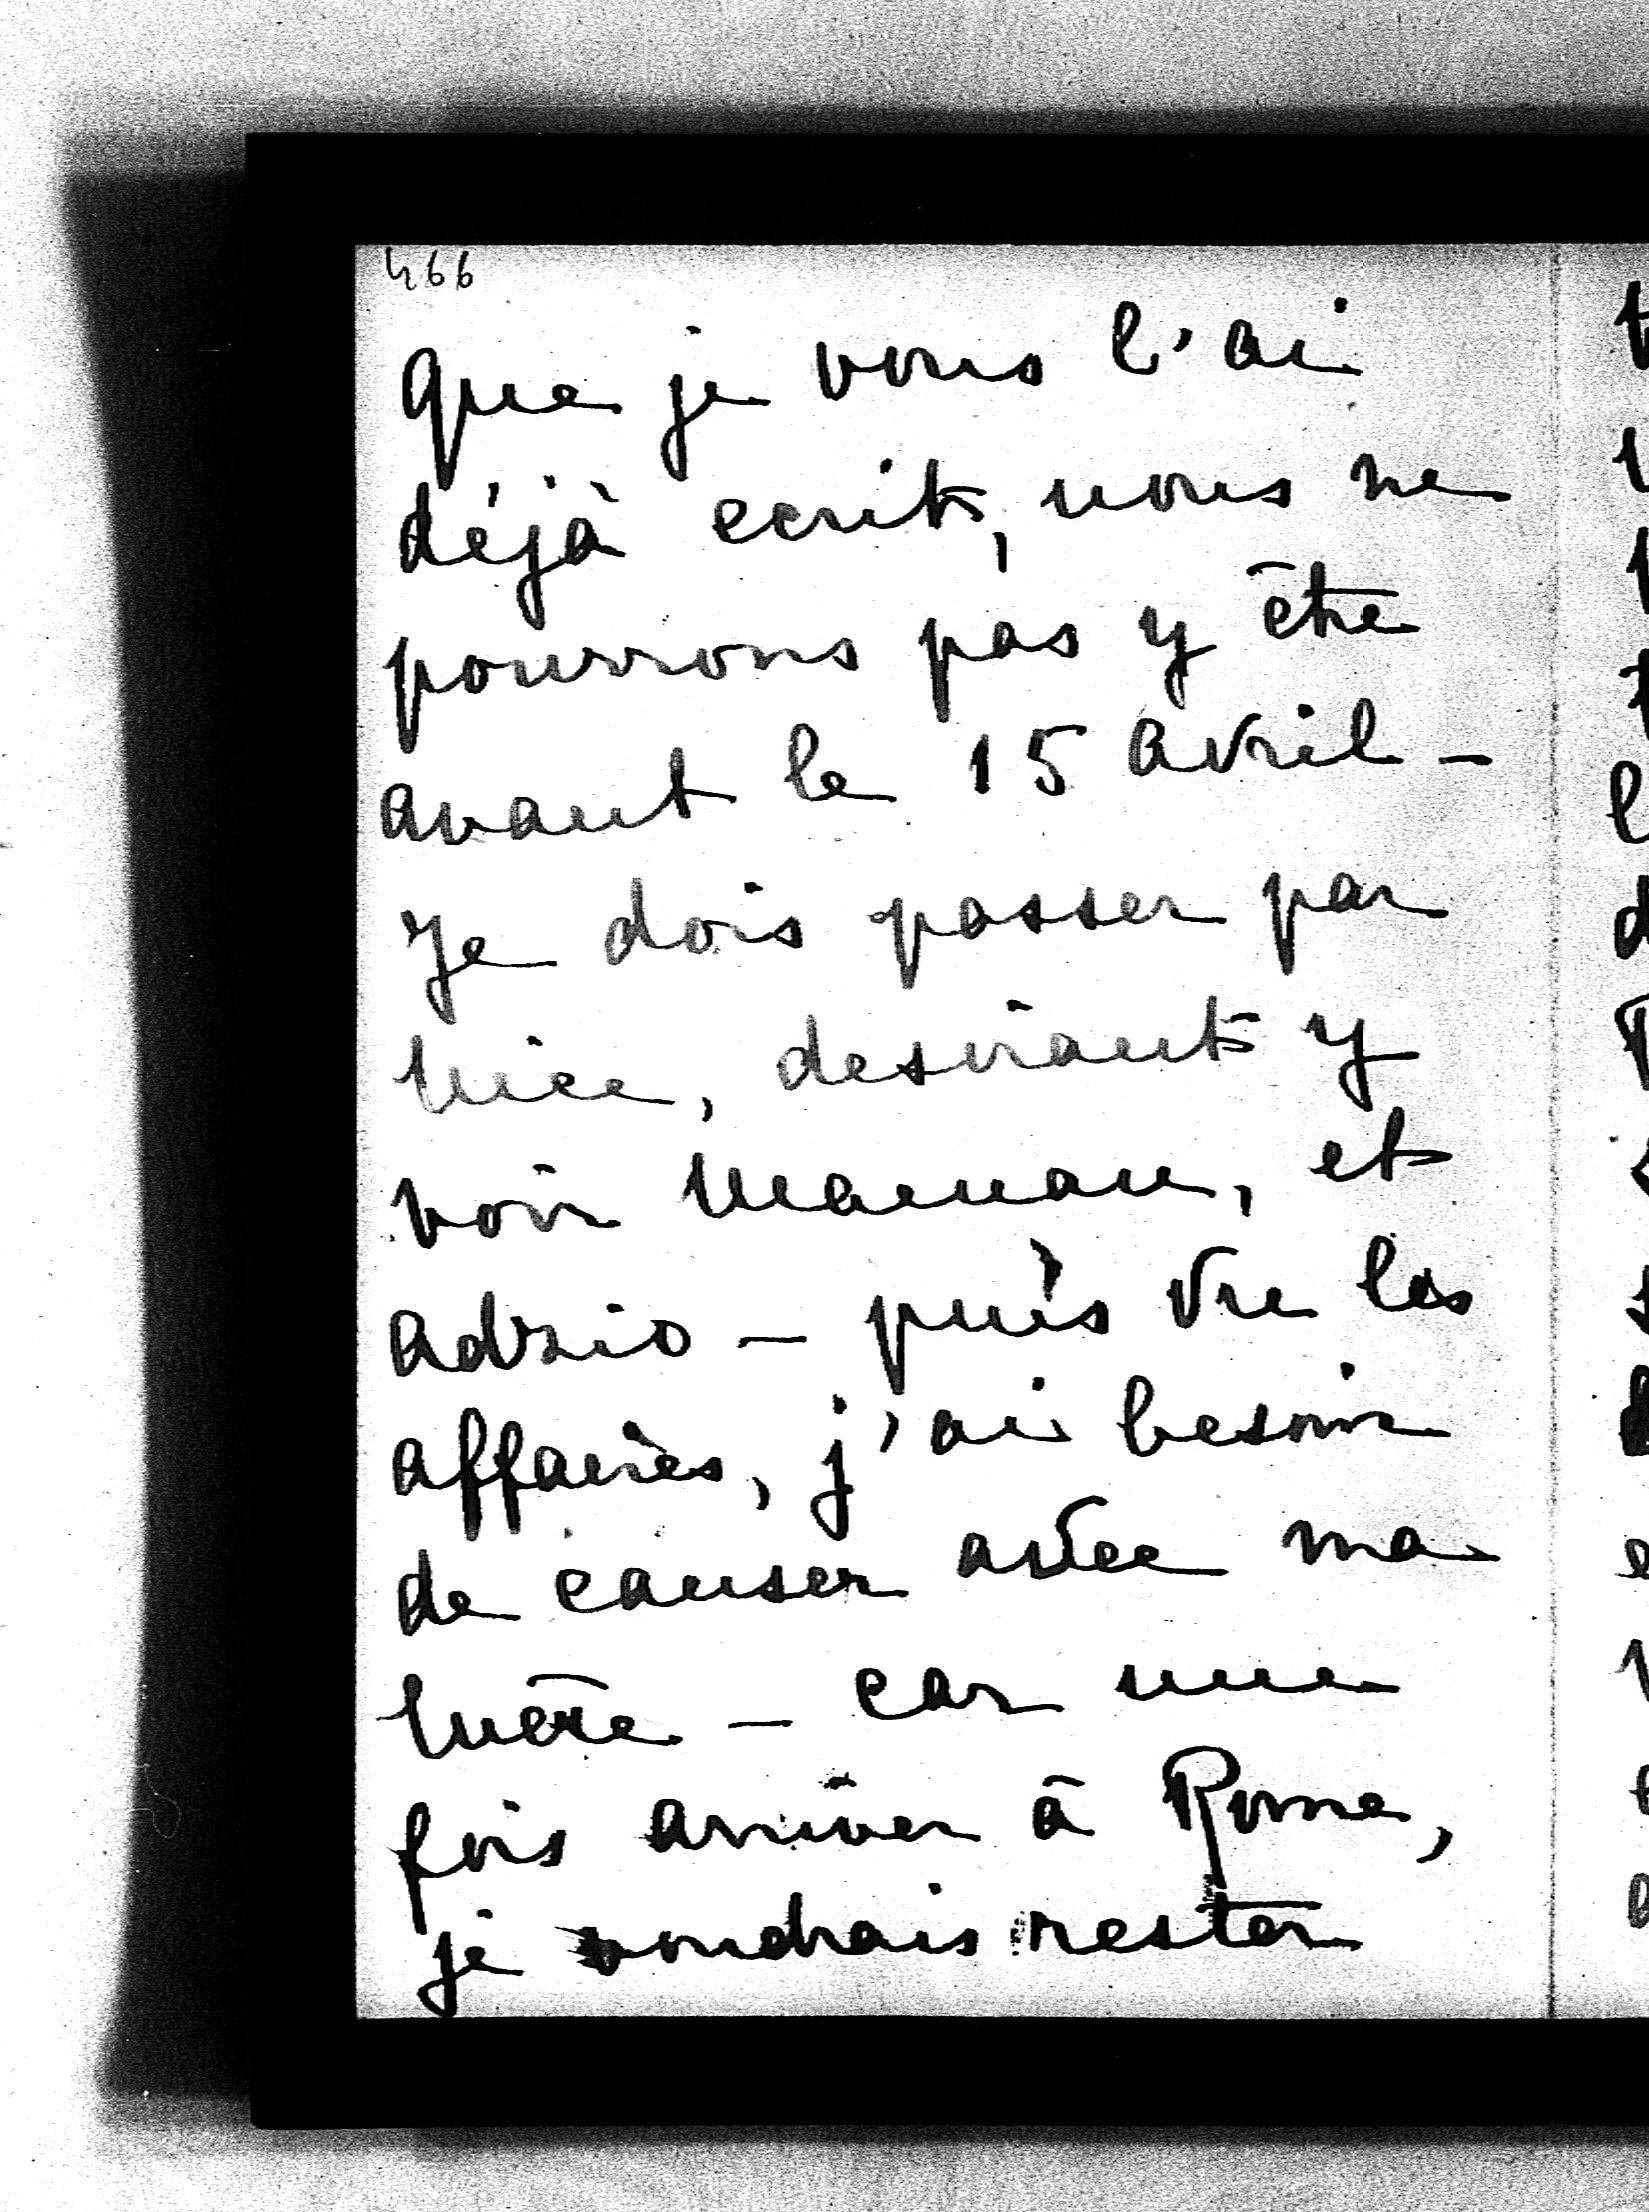 466
que je vous l'ai
déjà ecrit, nous ne
pourrons pas y être
avant le 15 avril –
Je dois passer par
Nice, desirant y
voir Maman, et
Adzio – puis vu les
affaires, j'ai besoin
de causer avec ma
Mère – car une
fois arriver à Rome,
je voudrais rester